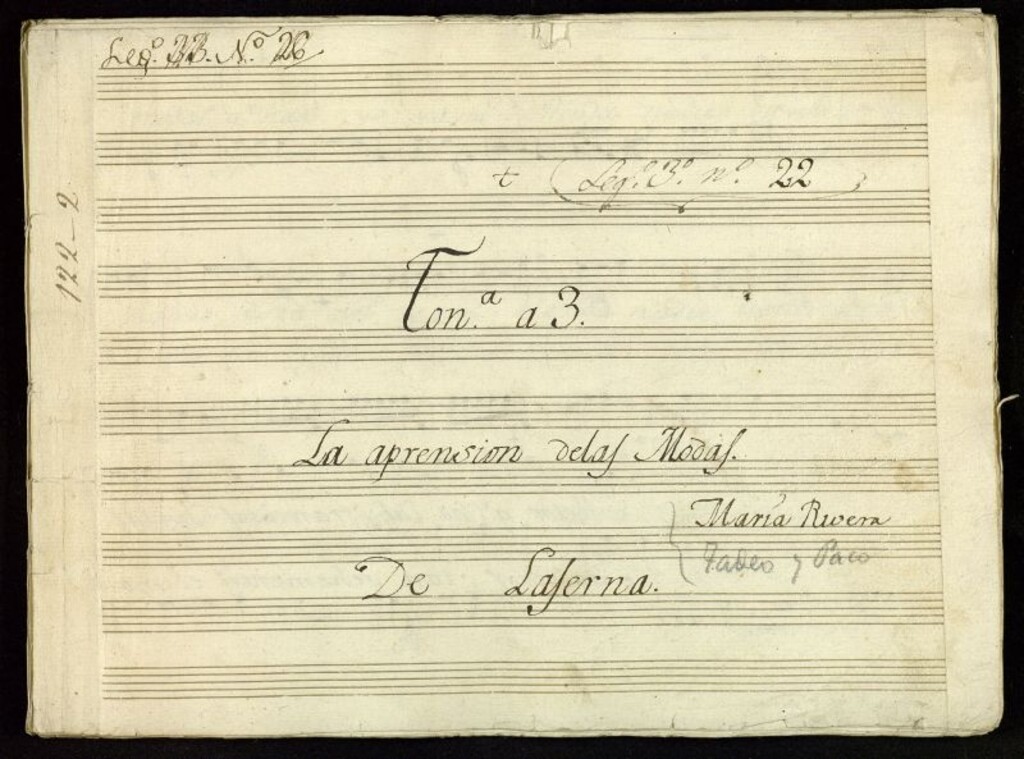 Leg.º 33. N.º 26
122-2
+ Leg.º 3.º n.º 22
Ton.ª a 3.
La aprension delas Modas.
Maria Rivera
Tadeo y Paco
De Laserna.